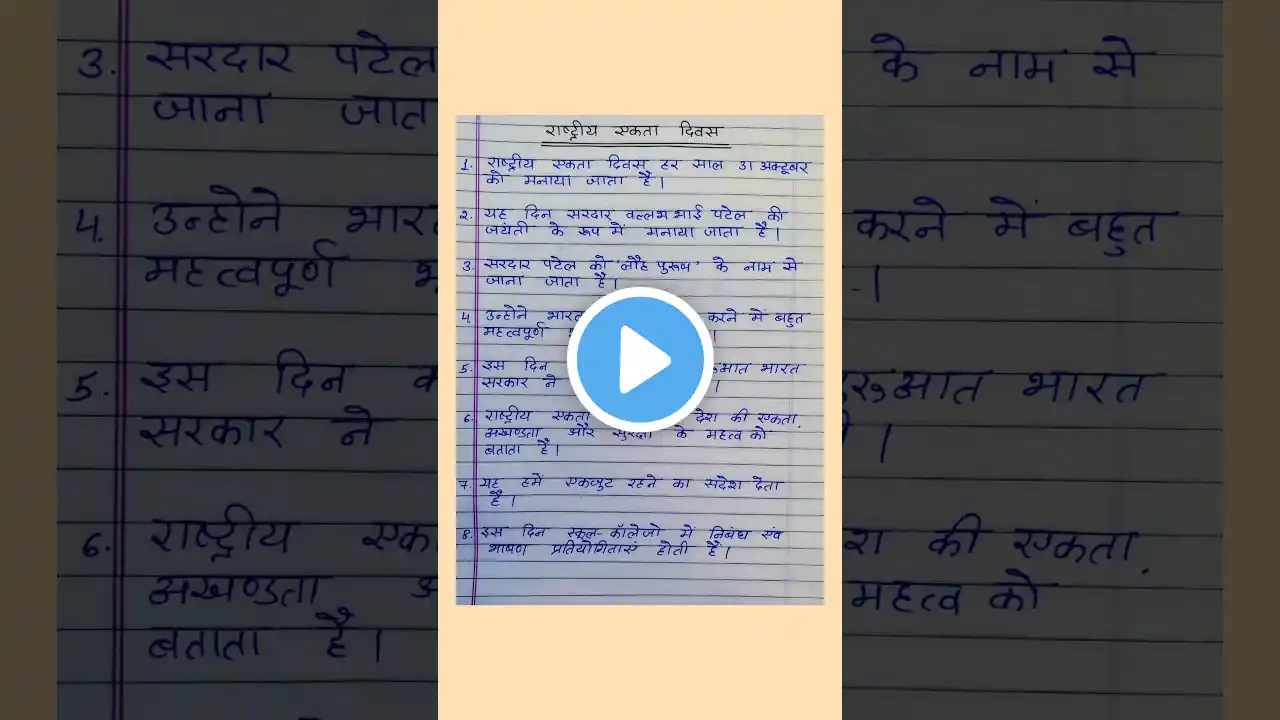 राष्ट्रीय एकता दिवस
1. राष्ट्रीय एकता दिवस हर साल 31 अक्टूबर
को मनाया जाता है।
2. यह दिन सरदार वल्लभ भाई पटेल की
जयंती के रूप में मनाया जाता है।
3. सरदार पटेल को 'लौह पुरूष' के नाम से
जाना जाता है।
4. उन्होने भारत करने में बहुत
महत्वपूर्ण ।
5. इस दिन शुरूआत भारत
सरकार ने ।
6. राष्ट्रीय एकता देश की एकता,
अखण्डता और सुरक्षा के महत्व को
बताता है।
7. यह हमें एकजुट रहने का संदेश देता
है।
8. इस दिन स्कूल-कॉलेजो में निबंध एंव
भाषण प्रतियोगिताएं होती हैं।